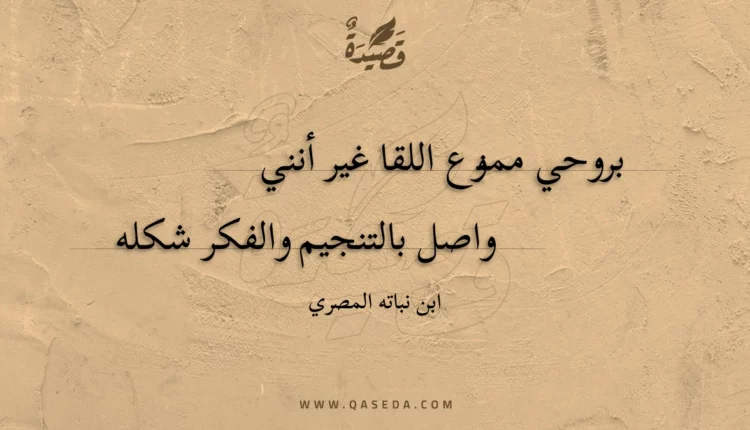 قَصِيْدَةٌ
بروحي ممنوع اللقا غير أنني
واصل بالتنجيم والفكر شكله
ابن نباته المصري
WWW.QASEDA.COM